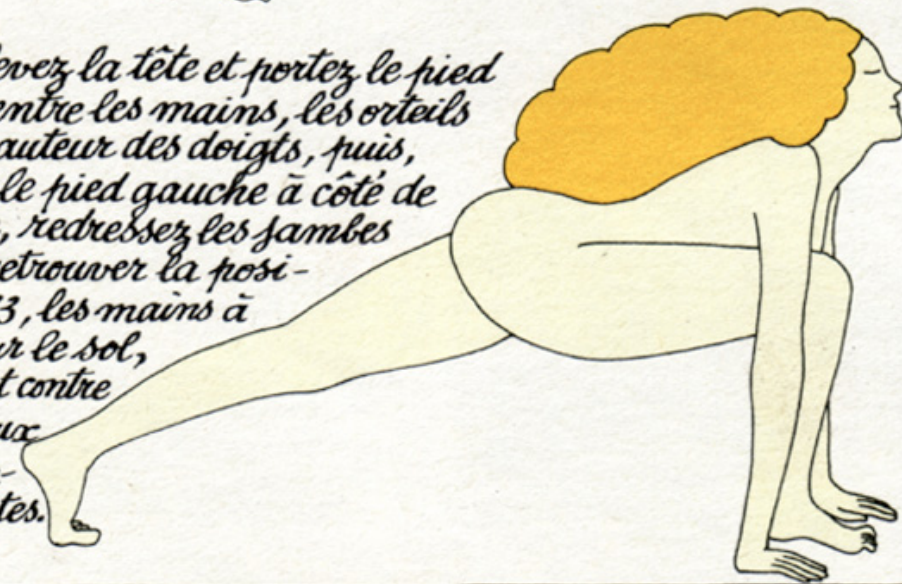 evez la tête et portez le pied
entre les mains, les orteils
auteur des doigts, puis,
le pied gauche à côté de
, redressez les jambes
retrouver la posi-
3, les mains à
ur le sol,
t contre
ux
-
tes.